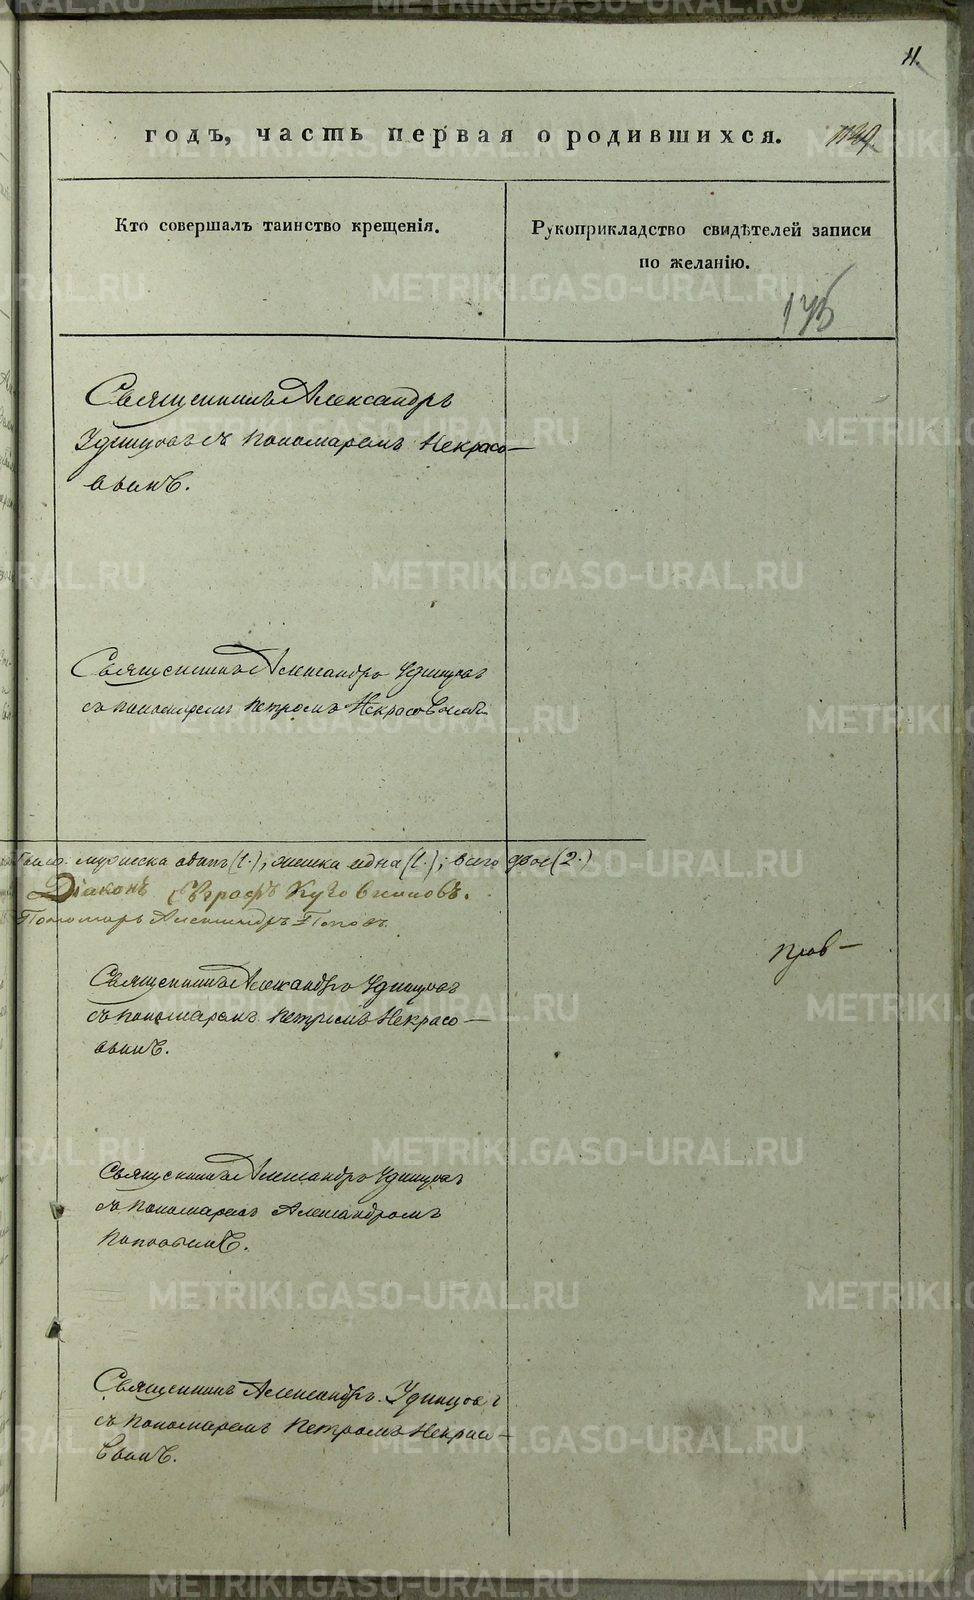 11.
годъ, часть первая о родившихся.
Кто совершалъ таинство крещенія.
Рукоприкладство свидѣтелей записи
по желанію.
175
Священникъ Александръ
Удинцовъ съ пономаремъ Некрасо-
вымъ.
Священникъ Александръ Удинцовъ
съ пономаремъ Петромъ Некрасовымъ
мужеска одинъ (1.); женска една (1.); всего двое (2.)
Діаконъ Евграфъ Кузовниковъ.
Пономарь Александръ Поповъ.
Священникъ Александръ Удинцовъ
съ пономаремъ Петромъ Некрасо-
вымъ.
Священникъ Александръ Удинцовъ
съ пономаремъ Александромъ
Поповымъ.
Священникъ Александръ Удинцовъ
съ пономаремъ Петромъ Некрасо-
вымъ.
METRIKI.GASO-URAL.RU